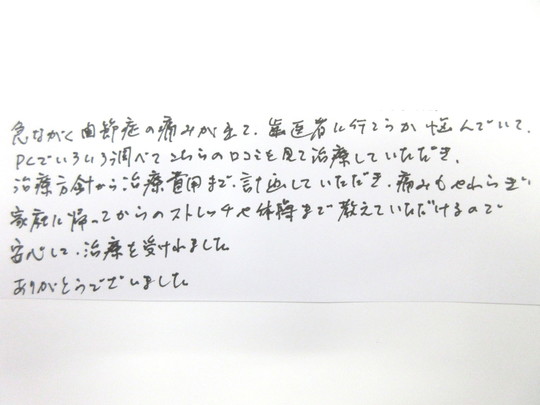 急ながく関節症の痛みが出て、歯医者に行こうか悩んでいて、
PCでいろいろ調べてこちらの口コミを見て治療していただき、
治療方針から治療費用まで、計画していただき、痛みもやわらぎ
家庭に帰ってからのストレッチや体操まで教えていただけるので
安心して、治療を受けれました
ありがとうございました